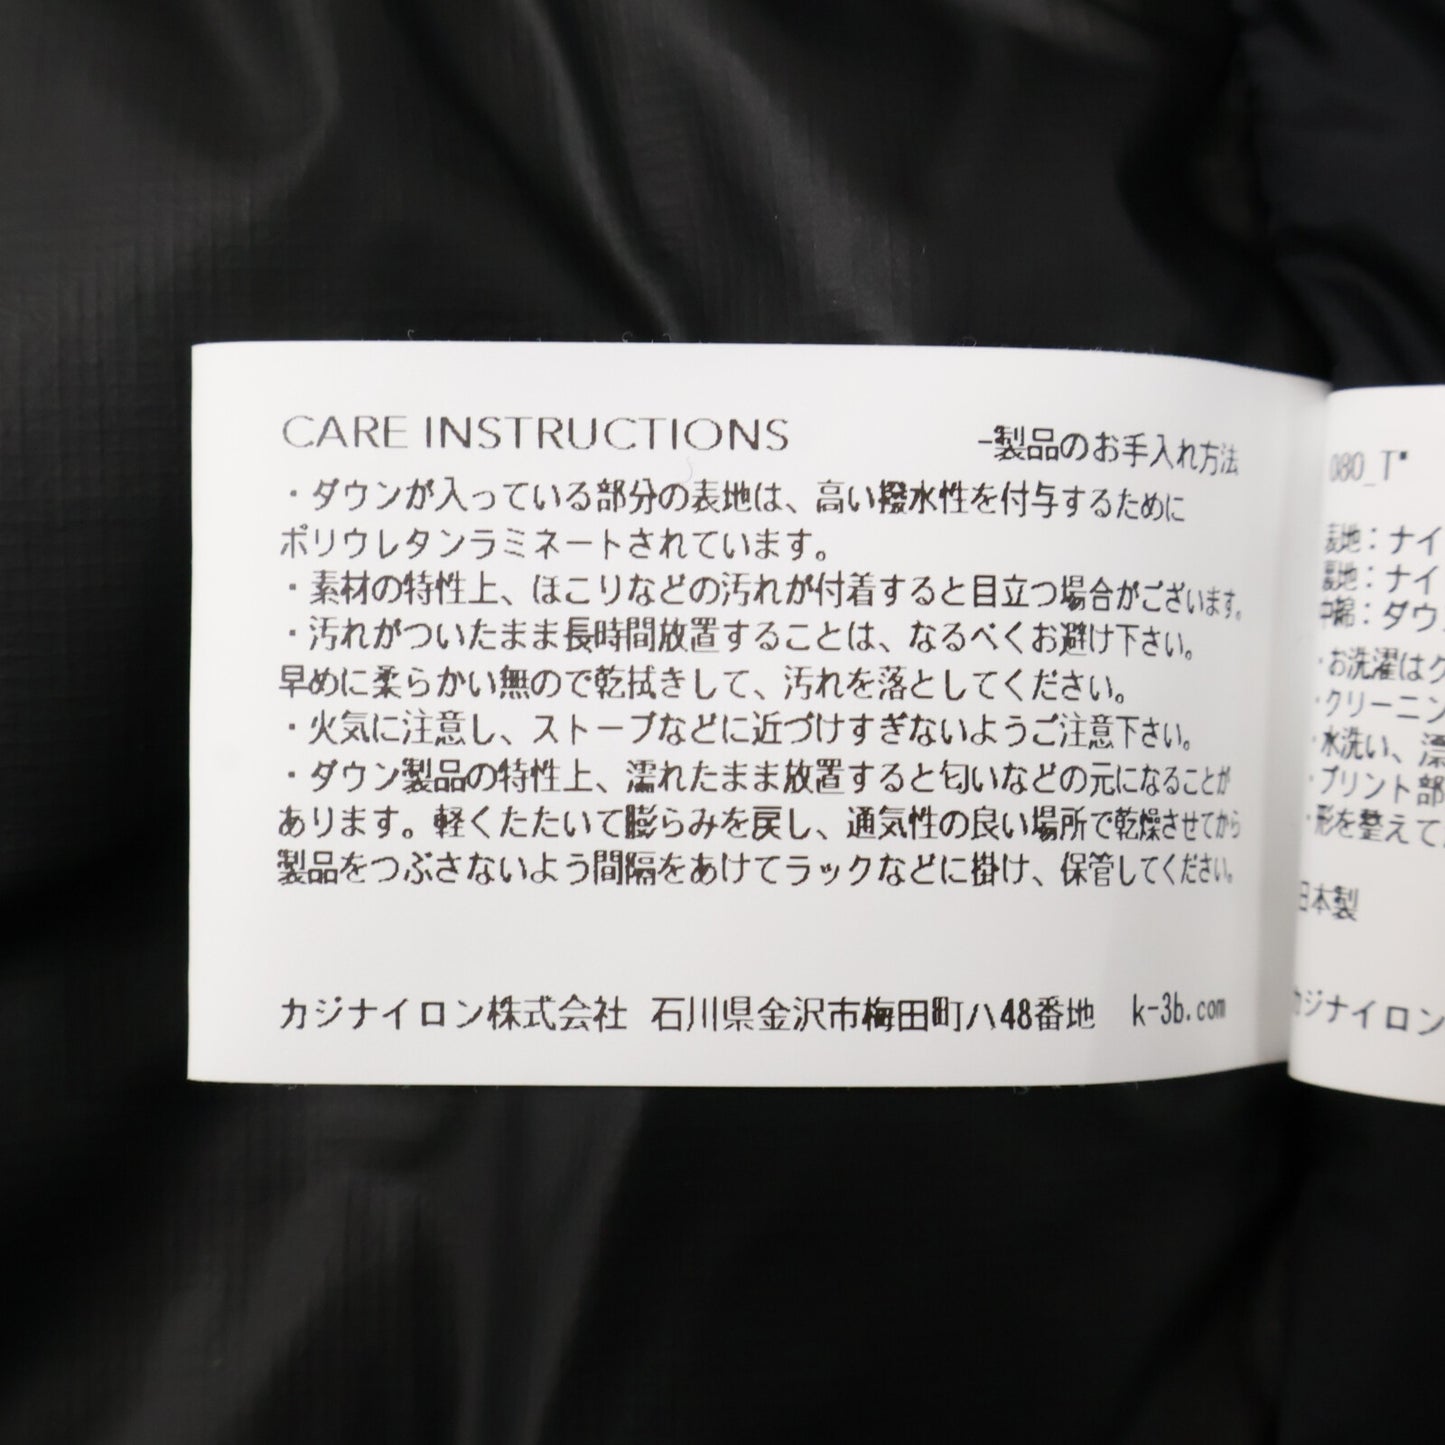 CARE INSTRUCTIONS -製品のお手入れ方法
・ダウンが入っている部分の表地は、高い撥水性を付与するために
ポリウレタンラミネートされています。
・素材の特性上、ほこりなどの汚れが付着すると目立つ場合がございます。
・汚れがついたまま長時間放置することは、なるべくお避け下さい。
早めに柔らかい無ので乾拭きして、汚れを落としてください。
・火気に注意し、ストーブなどに近づけすぎないようご注意下さい。
・ダウン製品の特性上、濡れたまま放置すると匂いなどの元になることが
あります。軽くたたいて膨らみを戻し、通気性の良い場所で乾燥させてから
製品をつぶさないよう間隔をあけてラックなどに掛け、保管してください。
カジナイロン株式会社 石川県金沢市梅田町ハ48番地 k-3b.com
080_T"
表地：ナイ
裏地：ナイ
中綿：ダウ
・お洗濯はク
・クリーニン
・水洗い、漂
・プリント部
・形を整えて
日本製
カジナイロン